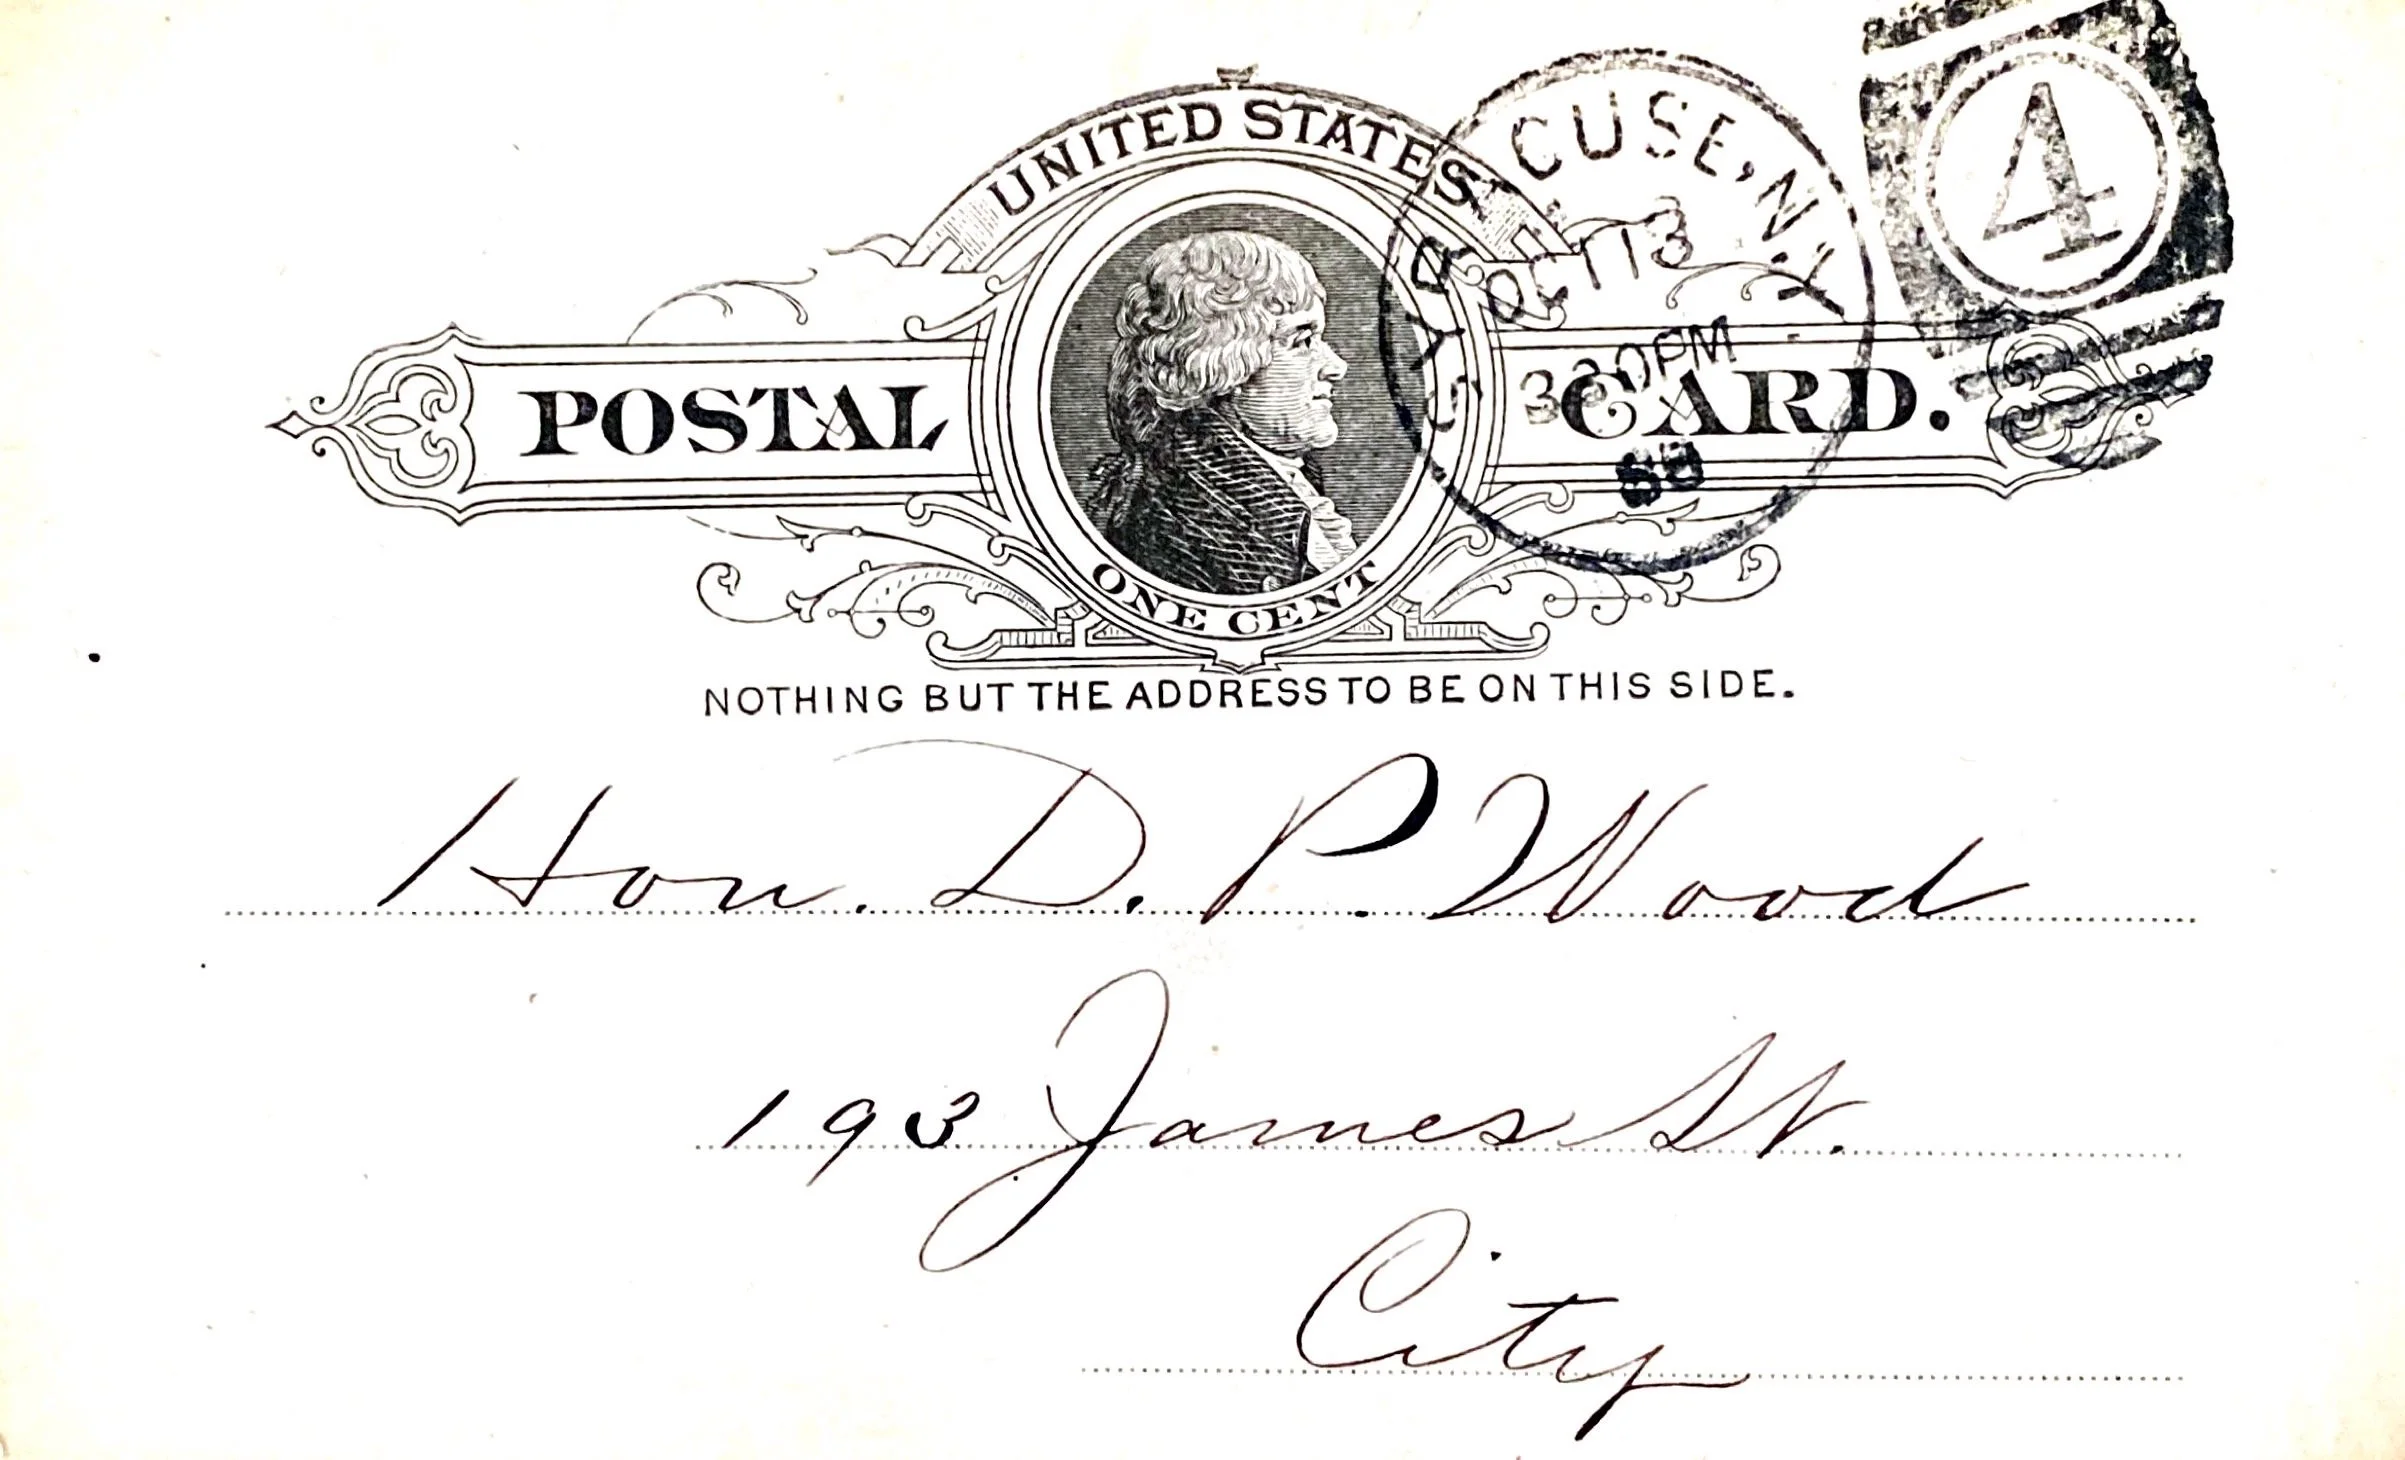 UNITED STATES
POSTAL CARD.
ONE CENT
SYRACUSE, N.Y.
OCT 13
3 30 PM
88
4
NOTHING BUT THE ADDRESS TO BE ON THIS SIDE.
Hon. D. P. Wood
193 James St.
City